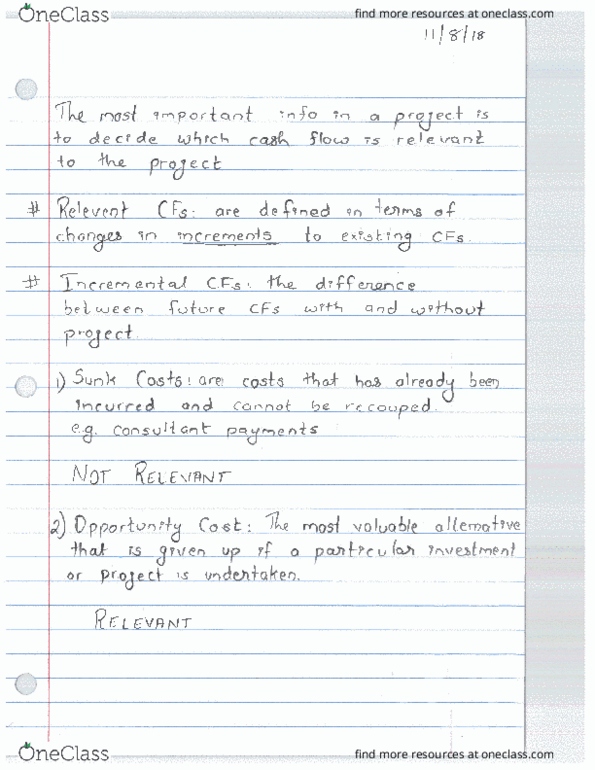 OneClass
find more resources at oneclass.com
11/8/18
The most important info in a project is
to decide which cash flow is relevant
to the project
# Relevent CFs: are defined in terms of
changes in increments to existing CFs.
# Incremental CFs: the difference
between future CFs with and without
project.
1) Sunk Costs: are costs that has already been
incurred and cannot be recouped.
e.g. consultant payments
NOT RELEVANT
2) Opportunity Cost: The most valuable alternative
that is given up if a particular investment
or project is undertaken.
RELEVANT
OneClass
find more resources at oneclass.com